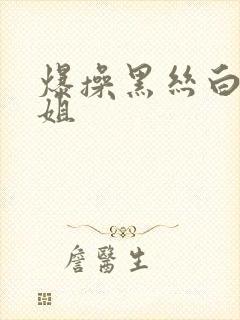 爆操黑丝白
姐
詹醫生